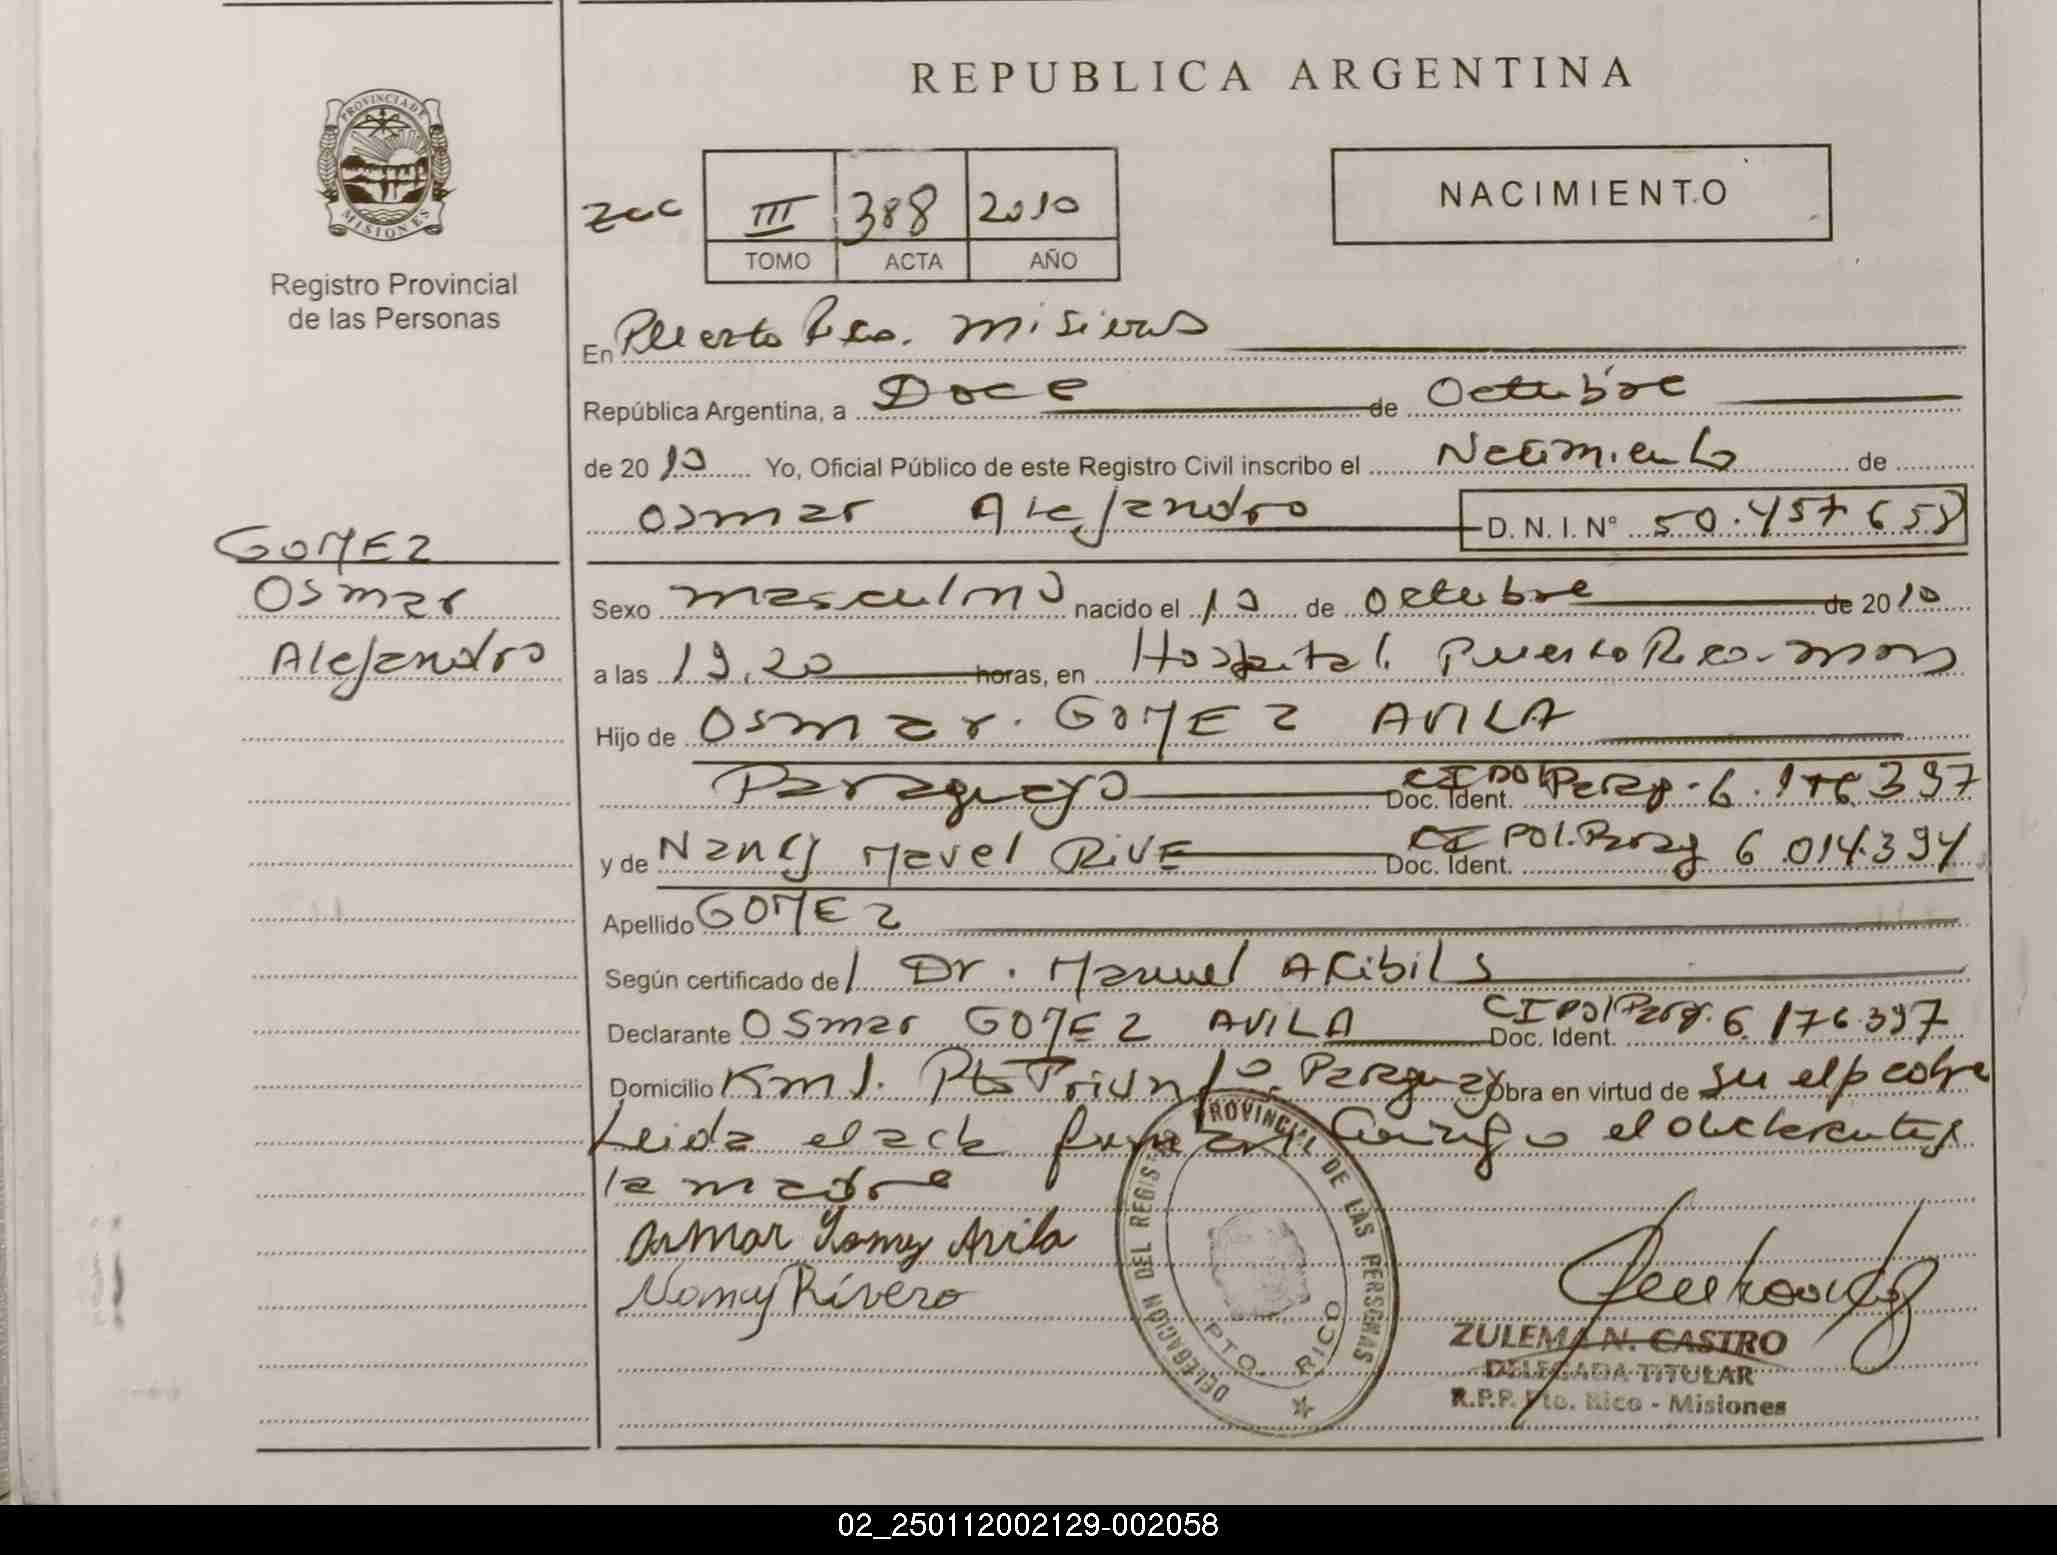 REPUBLICA ARGENTINA
PROVINCIA DE MISIONES
Registro Provincial
de las Personas
III 388 2010
TOMO ACTA AÑO
NACIMIENTO
En Puerto Rico. Misiones
República Argentina, a Doce de Octubre
de 2010 Yo, Oficial Público de este Registro Civil inscribo el Nacimiento de
Osmar Alejandro D. N. I. N° 50.457658
GOMEZ
Osmar
Alejandro
Sexo masculino nacido el 10 de Octubre de 2010
a las 19.20 horas, en Hospital. Puerto Rico. Mnes
Hijo de Osmar. GOMEZ AVILA
Paraguayo Doc. Ident. CI Pol Parag. 6.176397
y de Nancy Mavel RIVE Doc. Ident. CI POl. Parag 6.014.394
Apellido GOMEZ
Según certificado de l Dr. Manuel ARibils
Declarante Osmar GOMEZ AVILA Doc. Ident. CI Pol Parag. 6.176.397
Domicilio Km 1. Pto Triunfo. Paraguay Obra en virtud de su
Leida el acta firman el declarante y
la madre
Osmar Gomez Avila
Nancy Rivero
DELEGACION DEL REGISTRO PROVINCIAL DE LAS PERSONAS
PTO. RICO
ZULEMA N. CASTRO
DELEGADA TITULAR
R.P.P. Pto. Rico - Misiones
02_250112002129-002058